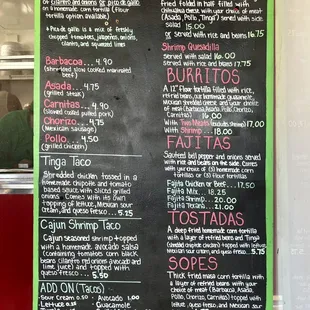 of cilantro and onions or pico de gallo
on homemade corn tortilla (flour
tortilla option available)
* Pico de gallo is a mix of freshly
chopped tomatoes, jalapenos, onions,
cilantro, and squeezed limes
Barbacoa... 4.90
(shredded slow cooked marinated
beef)
Asada.... 4.90
(grilled steak)
Carnitas... 4.90
(slowed cooked pulled pork)
Chorizo... 4.90
(Mexican sausage)
Pollo... 4.50
(grilled chicken)
Tinga Taco
Shredded chicken tossed in a
homemade chipotle and tomato
based sauce with sliced grilled
onions. Comes with its own
topping of lettuce, Mexican sour
cream, and queso fresco... 5.25
Cajun Shrimp Taco
Cajun seasoned shrimp topped
with a homemade avocado salsa
(containing tomatoes corn black
beans cilantro red onions avocado
and lime juice) and topped with
queso fresco 5.50
ADD ON (Tacos)
Sour Cream 0.50 Avocado 1.00
Lettuce 0.50 Guacamole
fried folded in half filled with
Chihuahua cheese with your choice of meat
(Asada, Pollo, Tinga) served with side
salad 15.00
or served with rice and beans 16.75
Shrimp Quesadilla
served with salad 16.00
served with rice and beans 17.75
BURRITOS
A 12" Flour tortilla filled with rice,
refried beans, our homemade guacamole,
Mexican shredded cheese, and your choice
of meat (Barbacoa, Asada, Pollo, Chorizo,
Carnitas) 16.00
With Two Meats (excludes shrimp) 17.00
With Shrimp... 18.00
FAJITAS
Sauteed bell pepper and onions served
with rice and beans on the side. Comes
with your choice of (3) homemade corn
tortillas or (2) flour tortillas
Fajita Chicken or Beef... 17.50
Fajita Mix... 18.25
Fajita Shrimp... 20.00
Fajita Texana... 21.75
TOSTADAS
A deep fried homemade corn tortilla
with a layer of refried beans and Tinga
(shredded chipotle chicken) topped with lettuce,
Mexican sour cream, and queso fresco... 5.75
SOPES
Thick fried masa corn tortilla with
a layer of refried beans with your
choice of meat (Barbacoa, Asada,
Pollo, Chorizo, Carnitas) topped with
lettuce, queso fresco and Mexican sour